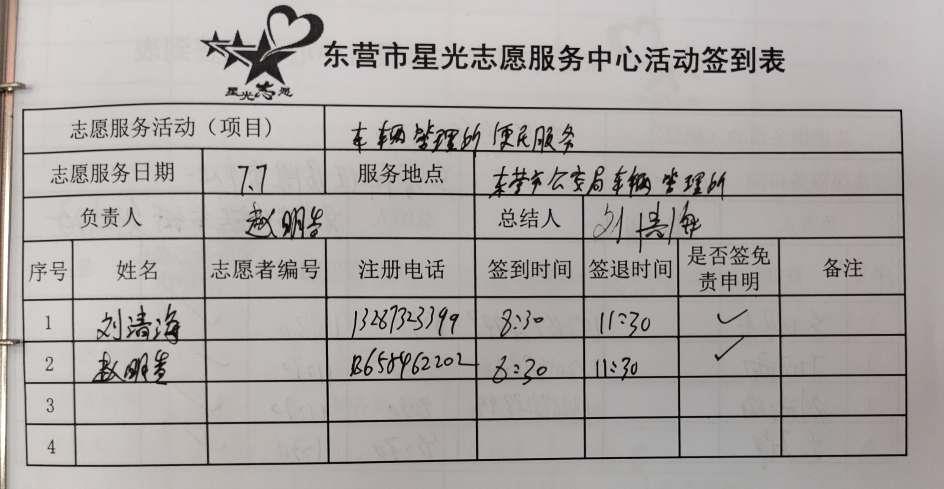 星光志愿
东营市星光志愿服务中心活动签到表
志愿服务活动（项目） 车辆管理所便民服务
志愿服务日期 7.7 服务地点 东营市公安局车辆管理所
负责人 赵明 总结人 刘清海
序号 姓名 志愿者编号 注册电话 签到时间 签退时间 是否签免责申明 备注
1 刘清海 13287323399 8:30 11:30 ✓
2 赵明 13658462202 8:30 11:30 ✓
3
4